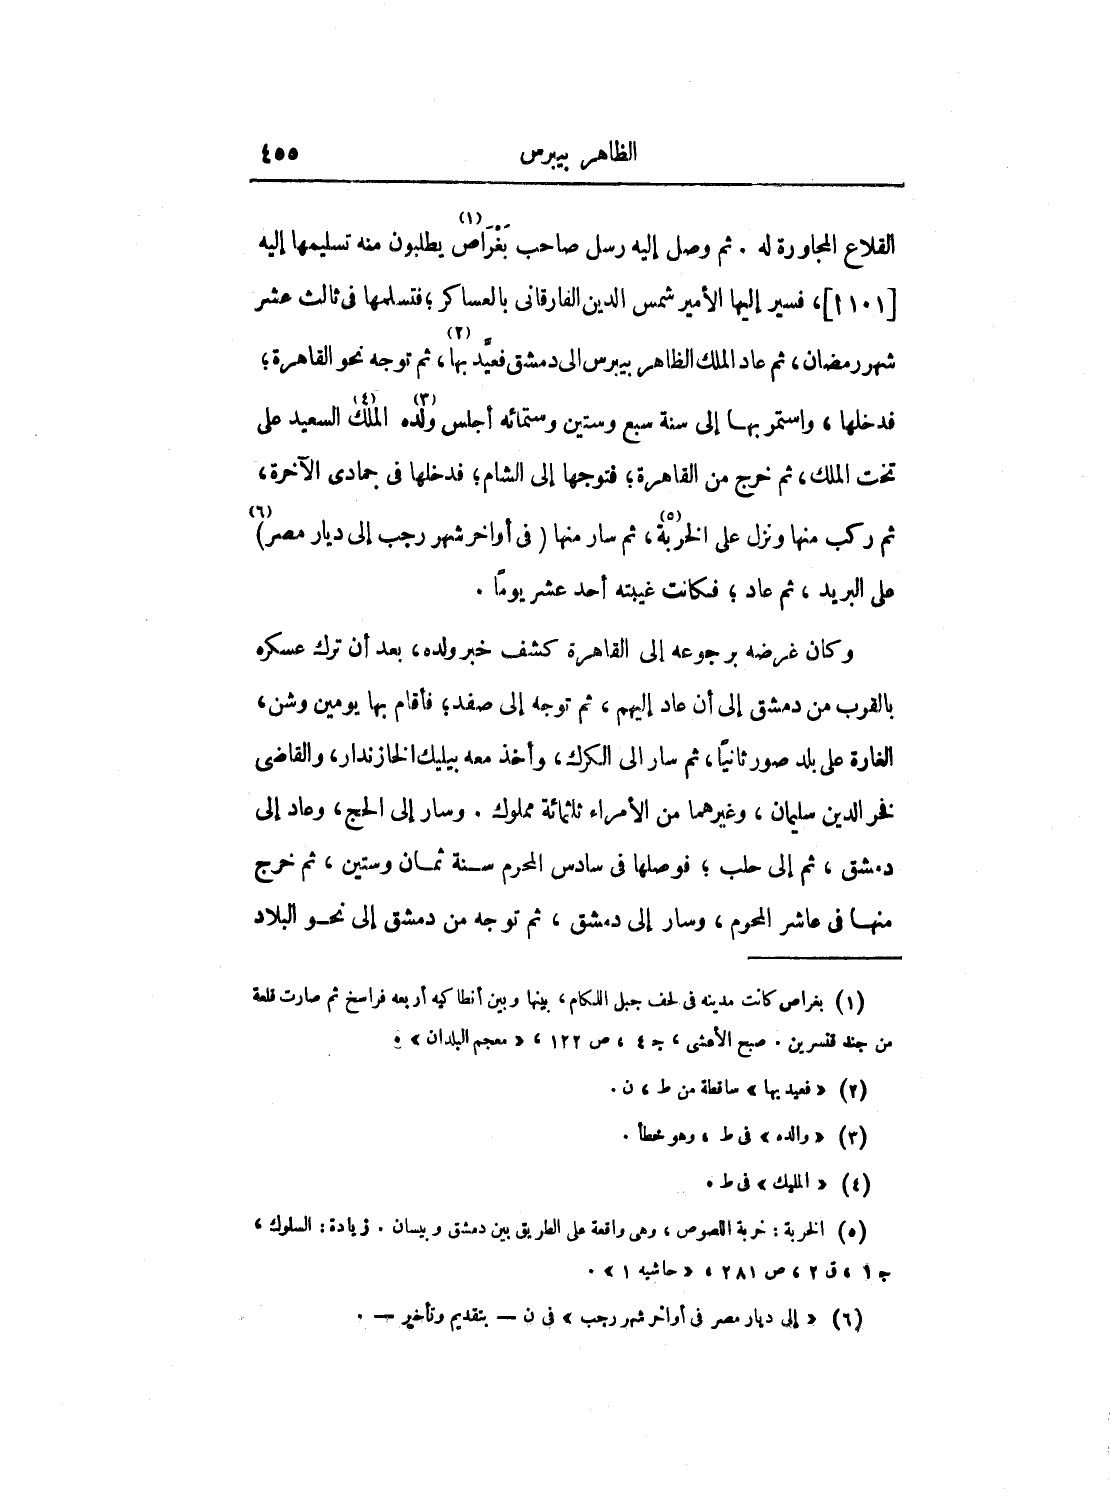 الظاهر بيبرس ٤٥٥
القلاع المجاورة له . ثم وصل إليه رسل صاحب بَغْرَاص (١) يطلبون منه تسليمها إليه
[١١٠١]، فسير إليها الأمير شمس الدين الفارقانى بالعساكر ؛ فتسلمها فى ثالث عشر
شهر رمضان ، ثم عاد الملك الظاهر بيبرس الى دمشق فعيَّد بها (٢)، ثم توجه نحو القاهرة ؛
فدخلها ، واستمر بهـا إلى سنة سبع وستين وستمائه أجلس ولده (٣) الملك (٤) السعيد على
تخت الملك ، ثم خرج من القاهرة ؛ فتوجها إلى الشام ؛ فدخلها فى جمادى الآخرة ،
ثم ركب منها ونزل على الخربة (٥) ، ثم سار منها ( فى أواخر شهر رجب إلى ديار مصر ) (٦)
على البريد ، ثم عاد ؛ فكانت غيبته أحد عشر يومًا .
وكان غرضه برجوعه إلى القاهرة كشف خبر ولده ، بعد أن ترك عسكره
بالقرب من دمشق إلى أن عاد إليهم ، ثم توجه إلى صفد ؛ فأقام بها يومين وشن ،
الغارة على بلد صور ثانيًا ، ثم سار الى الكرك ، وأخذ معه بيليك الخازندار ، والقاضى
فخر الدين سليمان ، وغيرهما من الأمراء ثلثمائة مملوك . وسار إلى الحج ، وعاد إلى
دمشق ، ثم إلى حلب ؛ فوصلها فى سادس المحرم سـنة ثمـان وستين ، ثم خرج
منهـا فى عاشر المحرم ، وسار إلى دمشق ، ثم توجه من دمشق إلى نحـو البلاد
(١) بغراص كانت مدينه فى لحف جبل اللكام ، بينها وبين أنطاكيه أربعه فراسخ ثم صارت قلعة
من جند قنسرين . صبح الأعشى ، جـ ٤ ، ص ١٢٢ ، « معجم البلدان » .
(٢) « فعيد بها » ساقطة من ط ، ن .
(٣) « والده » فى ط ، وهو خطأ .
(٤) « المليك » فى ط .
(٥) الخربة : خربة اللصوص ، وهى واقعة على الطريق بين دمشق وبيسان . زيادة : السلوك ،
جـ ١ ، ق ٢ ، ص ٢٨١ ، « حاشيه ١ » .
(٦) « إلى ديار مصر فى أواخر شهر رجب » فى ن — بتقديم وتأخير — .